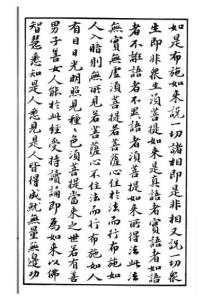 如是布施如來說一切諸相即是非相又說一切眾
生即非眾生須菩提如來是真語者實語者如語
者不誑語者不異語者須菩提如來所得法此法
無實無虛須菩提若菩薩心住於法而行布施如
人入暗則無所見若菩薩心不住法而行布施如人
有目日光明照見種種色須菩提當來之世若有善
男子善女人能於此經受持讀誦即為如來以佛
智慧悉知是人悉見是人皆得成就無量無邊功